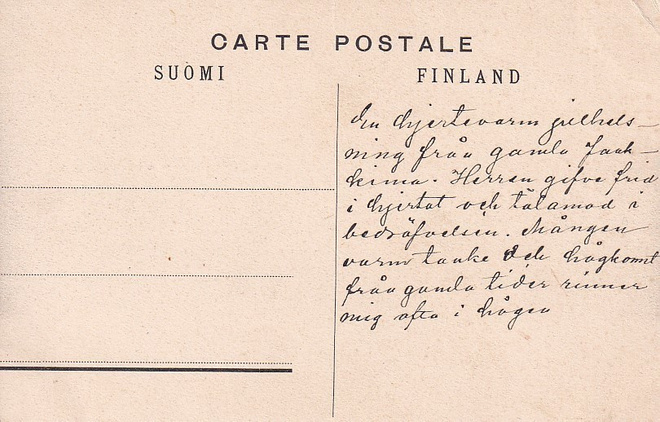 CARTE POSTALE
SUOMI
FINLAND
En hjertevarm julhels-
ning från gamla Jaak-
kima. Herren gifve frid
i hjertat och tålamod i
bedröfvelsen. Mången
varm tanke och hågkomst
från gamla tider rinner
mig ofta i hågen